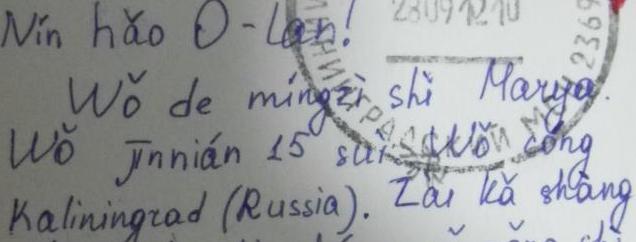 Nín hǎo O-Lan!
Wǒ de míngzì shì Marya.
Wǒ jīnnián 15 suì. Wǒ cóng
Kaliningrad (Russia). Zài kǎ shàng
28091210
2369